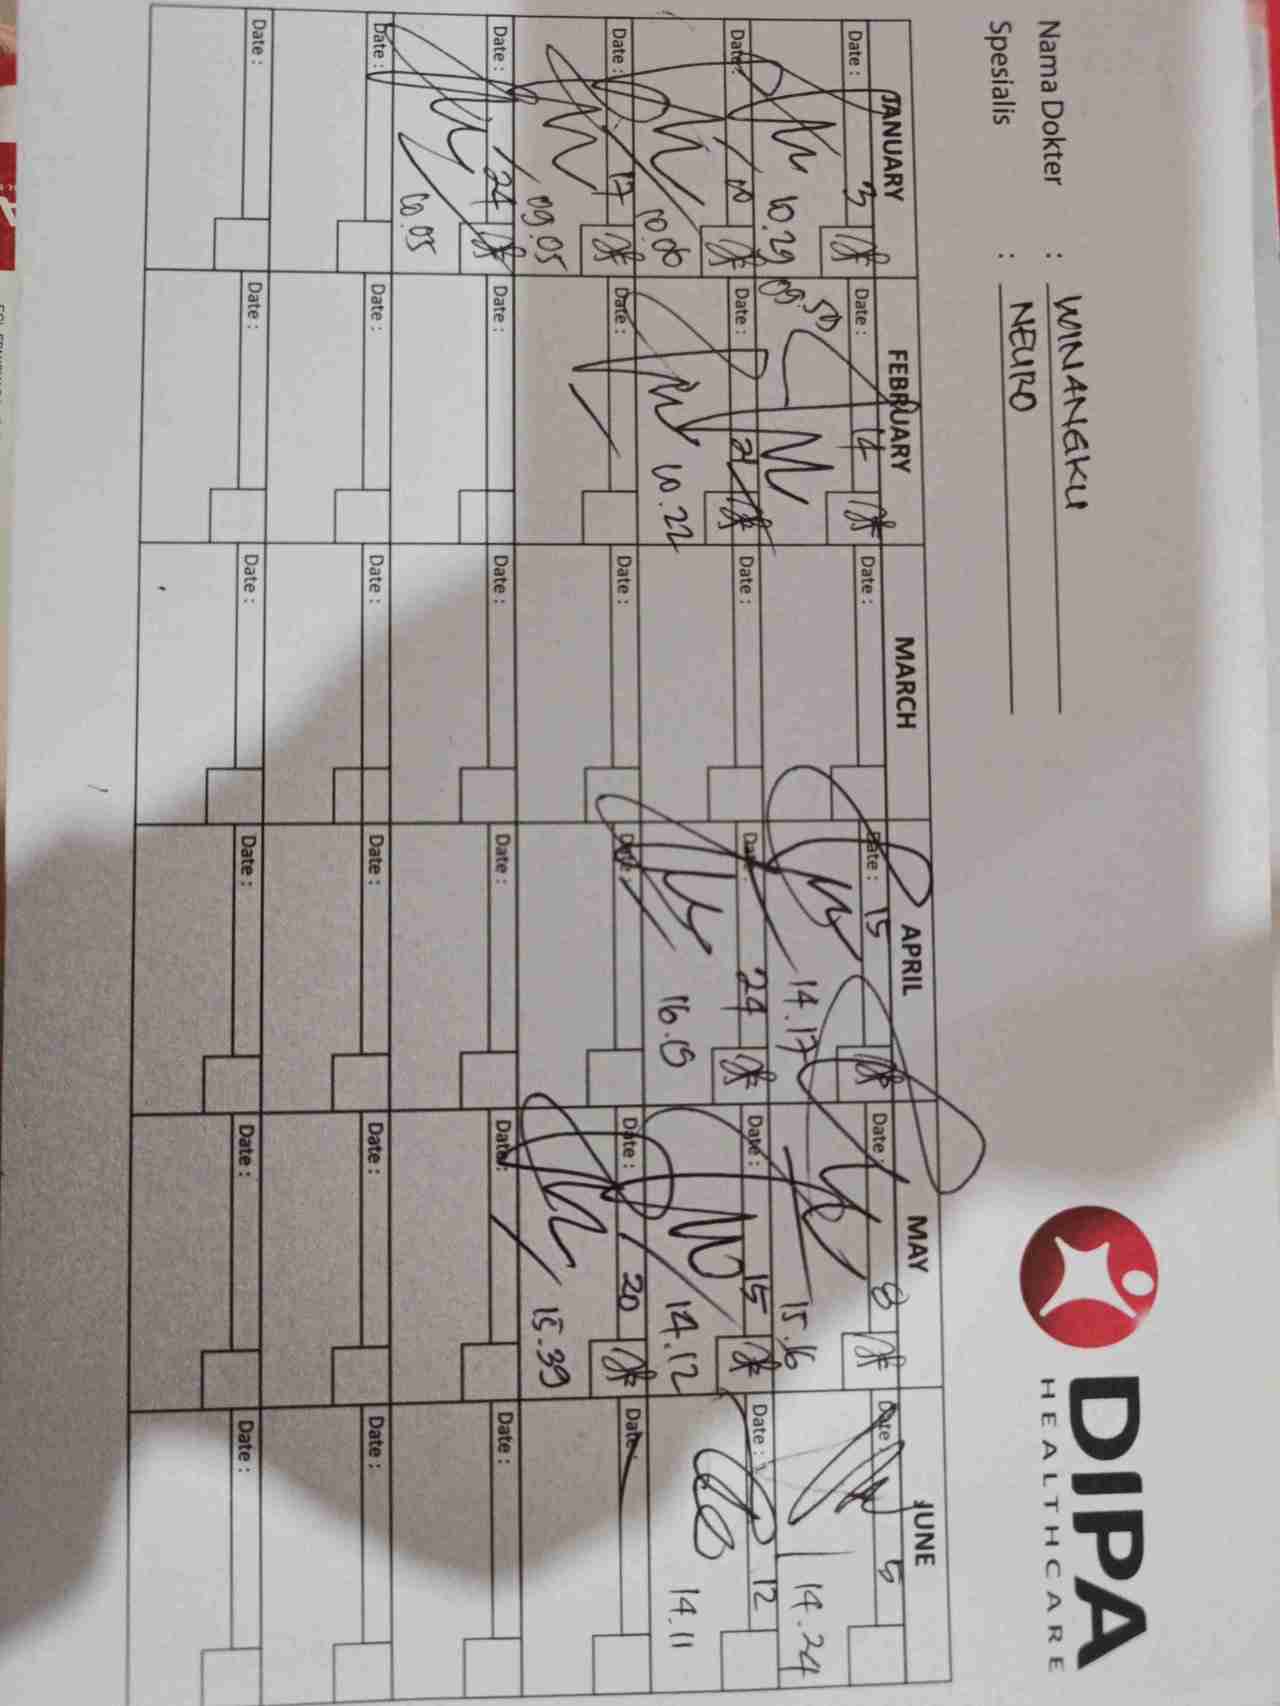 DIPA
HEALTHCARE
Nama Dokter : WINANGKU
Spesialis : NEURO
JANUARY FEBRUARY MARCH APRIL MAY JUNE
Date : 3 Date : 14 Date : Date : 15 Date : 8 Date : 5
10.29 09.50 14.17 15.16 14.24
Date : 8 Date : 21 Date : Date : 24 Date : 15 Date : 12
10.00 10.22 16.15 14.12 14.11
Date : 17 Date : Date : Date : Date : 20 Date :
09.05 15.39
Date : 24 Date : Date : Date : Date : Date :
10.05
Date : Date : Date : Date : Date : Date :
Date : Date : Date : Date : Date : Date :